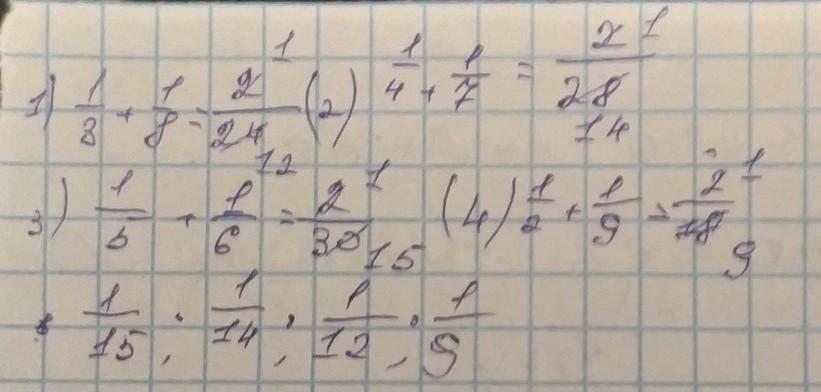 1) 1/3 + 1/8 = 2/24 1/12 (2) 1/4 + 1/7 = 2/28 1/14
3) 1/5 + 1/6 = 2/30 1/15 (4) 1/2 + 1/9 = 2/18 1/9
1/15 ; 1/14 ; 1/12 ; 1/9